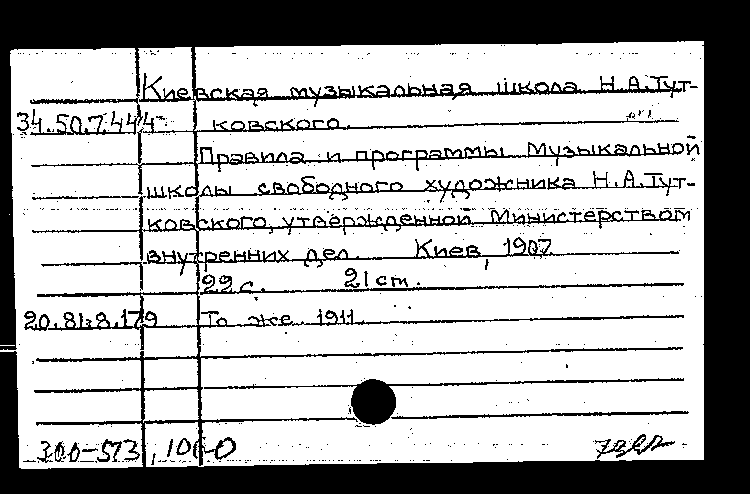 Киевская музыкальная школа Н.А.Тут-
34.50.7.444 ковского.
Правила и программы Музыкальной
школы свободного художника Н.А.Тут-
ковского, утвержденной Министерством
внутренних дел. Киев, 1907.
22 с. 21 см.
20.81.8.179 То же 1911.
300-573,